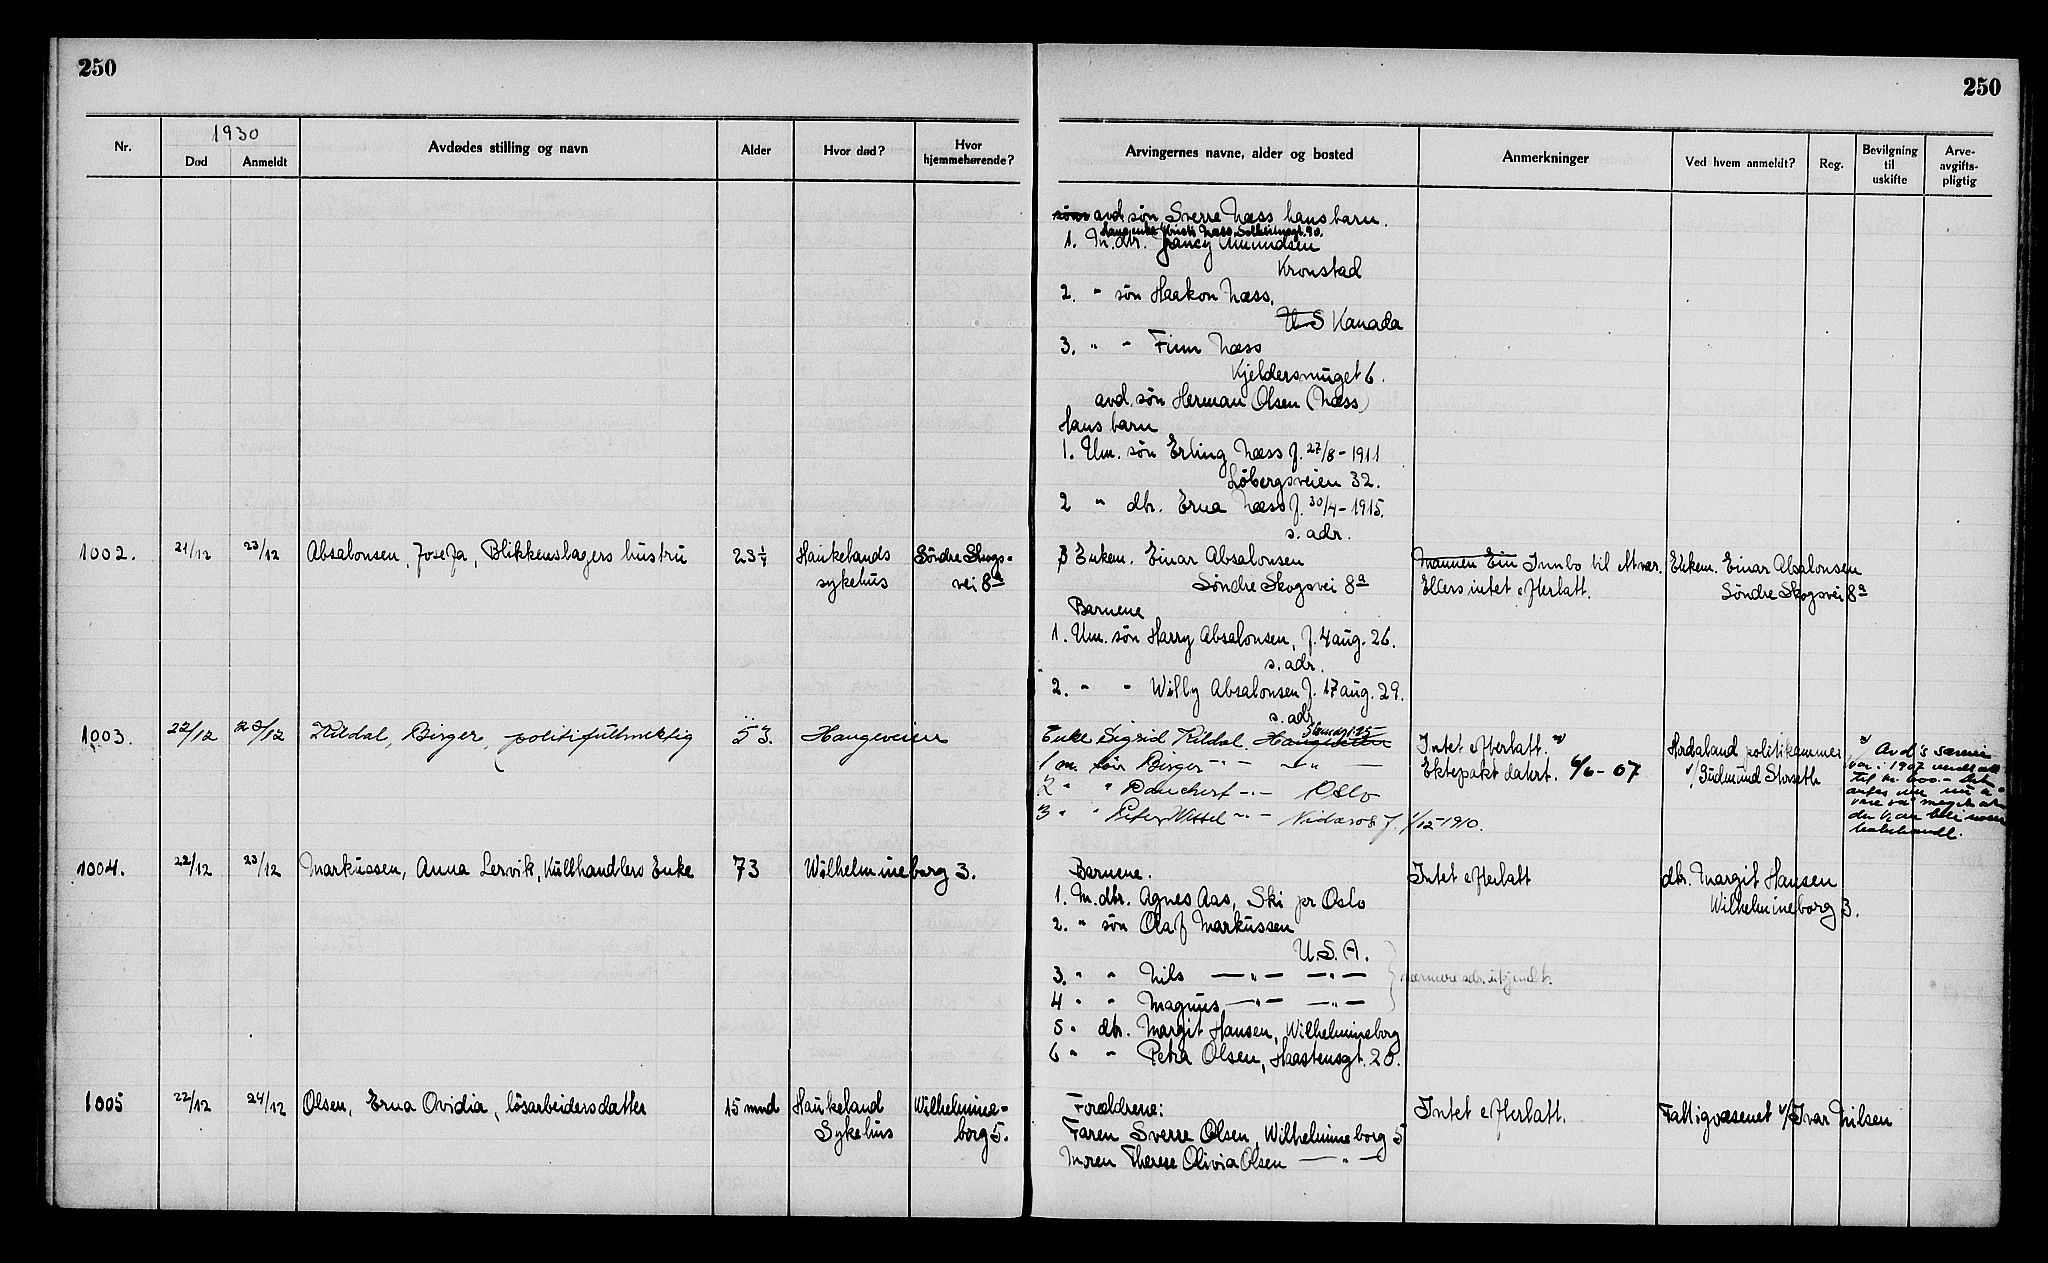 250
250
Nr.
1930
Død
Anmeldt
Avdødes stilling og navn
Alder
Hvor død?
Hvor hjemmehørende?
Arvingernes navne, alder og bosted
Anmerkninger
Ved hvem anmeldt?
Reg.
Bevilgning til uskifte
Arve-avgifts-pligtig
avd. søn Sverre Næss hans barn.
Næss, Solheimsgt. 90.
1. M. dtr. Fancy Amundsen
Kronstad
2. " søn Haakon Næss,
U S Kanada
3. " " Finn Næss
Kjeldersmuget 6.
avd. søn Herman Olsen (Næss)
Hans barn
1. Um. søn Erling Næss f. 27/8 - 1911
Løbergsveien 32.
2 " dtr. Erna Næss f. 30/4 - 1915.
s. adr.
1002. 21/12 23/12 Absalonsen, Josefa, Blikkenslagers hustru 23 1/4 Haukelands Søndre Skogs-
sykehus vei 8a
Enkem. Einar Absalonsen
Søndre Skogsvei 8a
Mannen Ein Innbo til Ellers intet efterlatt.
Enkem. Einar Absalonsen
Søndre Skogsvei 8a
Barnene
1. Um. søn Harry Absalonsen, f. 4 aug. 26.
s. adr.
2. " " Willy Absalonsen f. 17 aug. 29.
s. adr.
1003. 22/12 23/12 Kildal, Birger, politifullmektig 53. Haugeveien
Enke Sigrid Kildal, Haugeveien
1 m. søn Birger -"- -"-
2 " " Danchert -"- Oslo
3 " " Peter Wessel -"- Nidaros f. 1/12 - 1910.
Intet efterlatt. x)
Ektepakt datert. 6/6 - 07
Hordaland politikammer
v/ Gudmund Storseth
x) Avd's særeie
var i 1907
til kr. 600.-
1004. 22/12 23/12 Markussen, Anna Lervik, Kullhandlers Enke 73 Wilhelmineborg 3.
Barnene.
1. M. dtr. Agnes Aas, Ski pr Oslo
2. " søn Olaf Markussen
U.S.A.
3. " " Nils -"- -"-
4 " " Magnus -"- -"-
nærmere adr. ukjendt.
5 " dtr. Margit Hansen, Wilhelmineborg
6 " " Petra Olsen, Haastensgt. 20.
Intet efterlatt
dtr. Margit Hansen
Wilhelmineborg 3.
1005 22/12 24/12 Olsen, Erna Ovidia, løsarbeidersdatter 15 mnd Haukeland Wilhelmine-
Sykehus borg 5.
Forældrene:
Faren Sverre Olsen, Wilhelmineborg 5
Moren Therese Olivia Olsen -"-
Intet efterlatt.
Fattigvæsenet v/ Ivar Nilsen